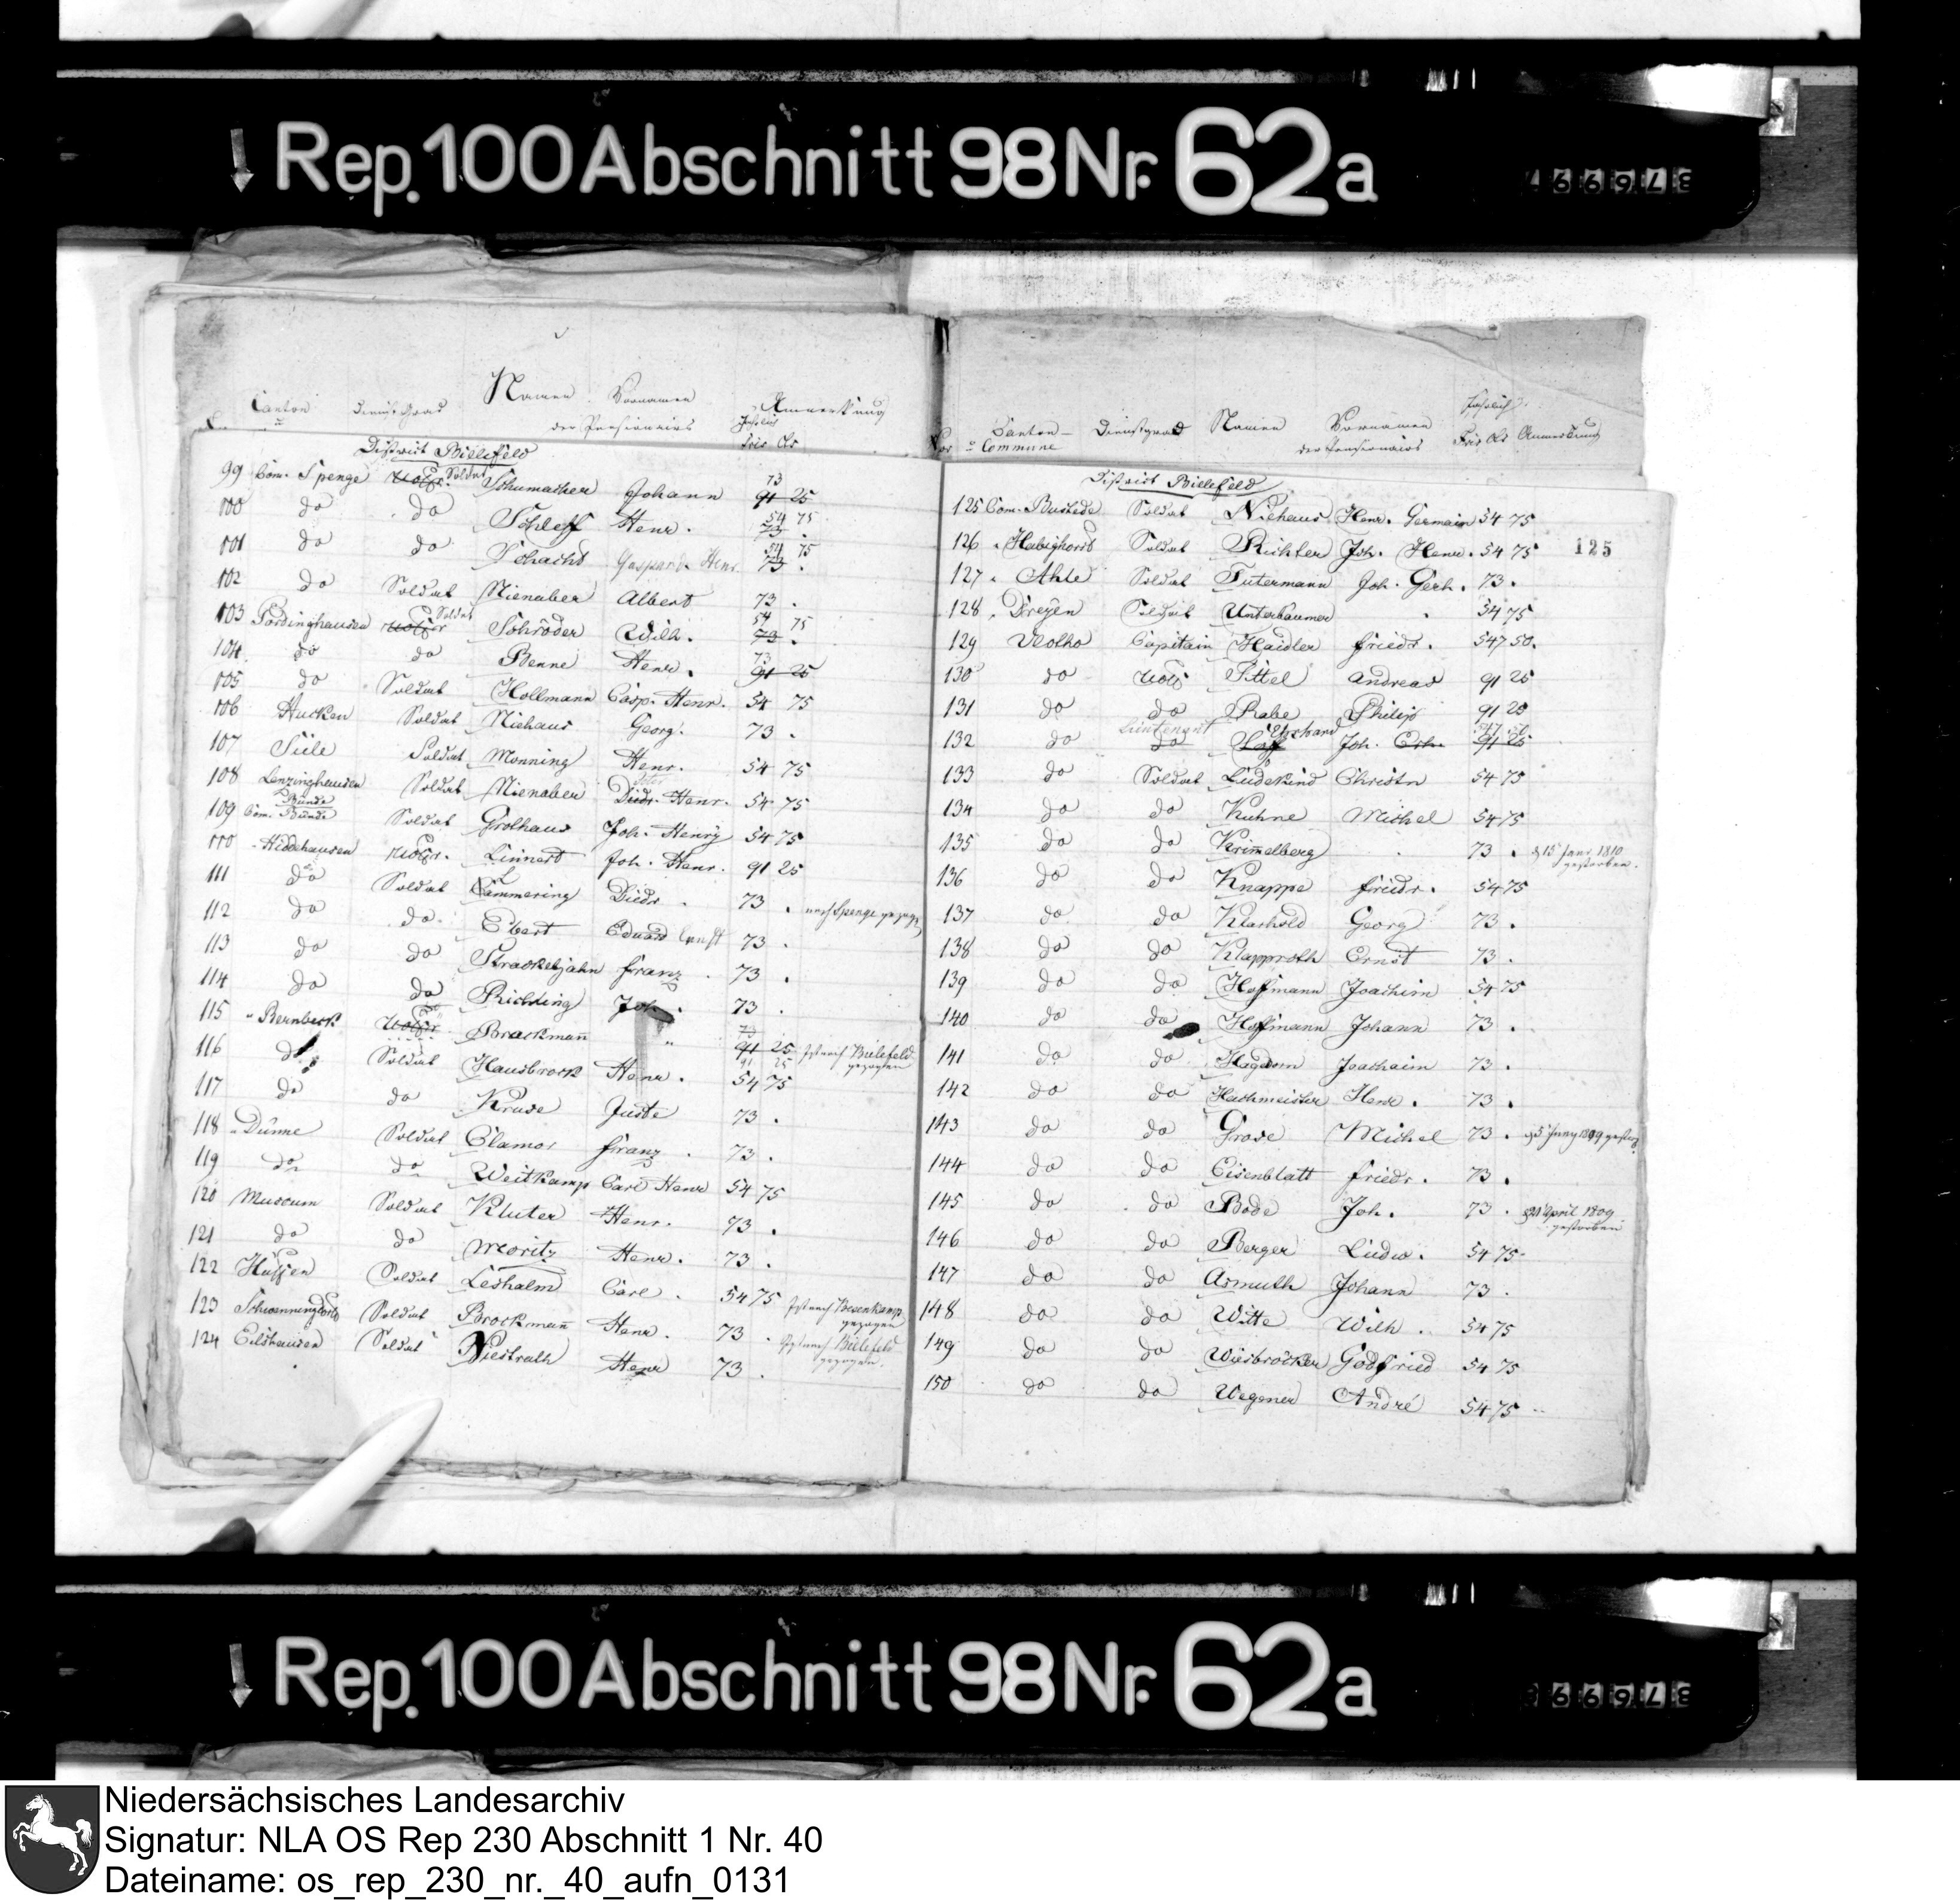 Rep. 100 Abschnitt 98 Nr. 62a
376997
Namen Vornamen Anmerkung
Canton Dienst Grad der Pensionairs Jährlich
u frcs Cts
District Bielefeld
99 Com. Spenge Uoffr. Soldat Schumacher Johann 73 91 25
100 do do Schleff Henr. 54 75 73 .
101 do do Schacht Gaspard. Henr. 54 75 73 .
102 do Soldat Nienaber Albert 73 .
103 Pödinghausen Uoffr Soldat Schröder Wilh. 54 75 73 .
104 do do Benne Henr. 73 91 25
105 do Soldat Hollmann Casp. Henr. 54 75
106 Hücken Soldat Niehaus Georg. 73 .
107 Siele Soldat Monning Henr. 54 75
108 Lenzinghausen Soldat Nienaber Peter Diedr. Henr. 54 75
109 Com. Bünde Bünde Soldat Grothaus Joh. Henry 54 75
110 Hiddehausen Uoffr. Linnert Joh. Henr. 91 25
111 do Soldat Lammering Diedr . 73 . nach Spenge gezogen
112 do do Ebert Eduard Ernst 73 .
113 do do Strackeljahn Franz . 73 .
114 do do Richting Joh. 73 .
115 " Bernbeck Uoffr Brackmann " 73 91 25 Ist nach Bielefeld
gezogen
116 do Soldat Hausbrock Henr . 91 25 54 75
117 do do Kruse Juste 73 .
118 " Dünne Soldat Clamor Franz . 73 .
119 do do Weitkamp Carl Henr 54 75
120 Muccum Soldat Kluter Henr. 73 .
121 do do Moritz Henr . 73 .
122 Hüffen Soldat Leshalm Carl . 54 75
123 Schwenningdorf Soldat Brockmann Henr . 73 . Ist nach Besenkamp
gezogen
124 Eilshausen Soldat Niestrath Henr 73 . Ist nach Bielefeld
gezogen.
Jährlich
Nor Canton Dienstgrad Namen Vornamen Frcs Cts Anmerkung
u Commune der Pensionairs
District Bielefeld
125 Com. Bustede Soldat Niehaus Henr. Germain 54 75
125
126 " Habighorst Soldat Richter Joh. Henr. 54 75
127 " Ahle Soldat Tutermann Joh. Gerh. 73 .
128 " Dreyen Soldat Unterbäumer . 54 75
129 Vlotho Capitain Haidler Friedr . 547 50.
130 do Uoff Tittel Andreas 91 25
131 do do Rabe Philip 91 25
132 do Lieutenant do Ehrhard Joh. Erh. 91 25
133 do Soldat Lüdekind Christn 54 75
134 do do Kuhne Michel 54 75
135 do do Krimelberg . 73 . d 15 Janr. 1810
gestorben.
136 do do Knappe Friedr . 54 75
137 do do Klashold Georg 73 .
138 do do Klapproth Ernst 73 .
139 do do Hoffmann Joachim 54 75
140 do do Hoffmann Johann 73 .
141 do do Hagdorn Joachaim 73 .
142 do do Hachmeister Henr . 73 .
143 do do Grose Michel 73 . d 5 Juny 1809 gestorb.
144 do do Eisenblatt Friedr . 73 .
145 do do Bode Joh. 73 . d 21 April 1809
gestorben
146 do do Berger Ludw. 54 75
147 do do Asmuth Johann 73 .
148 do do Witte Wilh . 54 75
149 do do Wiesbröcker Godfried 54 75
150 do do Wegener André 54 75
Rep. 100 Abschnitt 98 Nr. 62a
Niedersächsisches Landesarchiv
Signatur: NLA OS Rep 230 Abschnitt 1 Nr. 40
Dateiname: os_rep_230_nr._40_aufn_0131